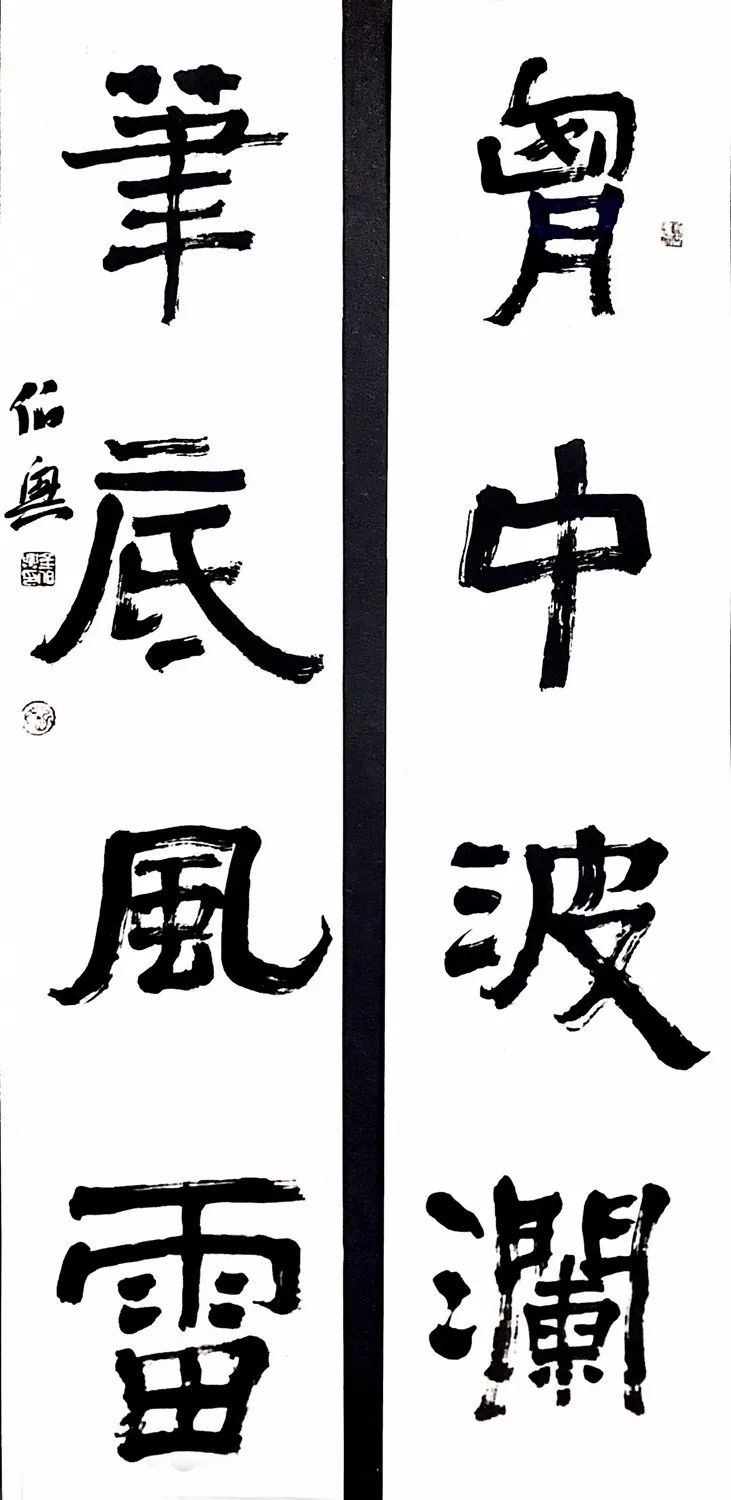 胷中波瀾
筆底風雷
伯興